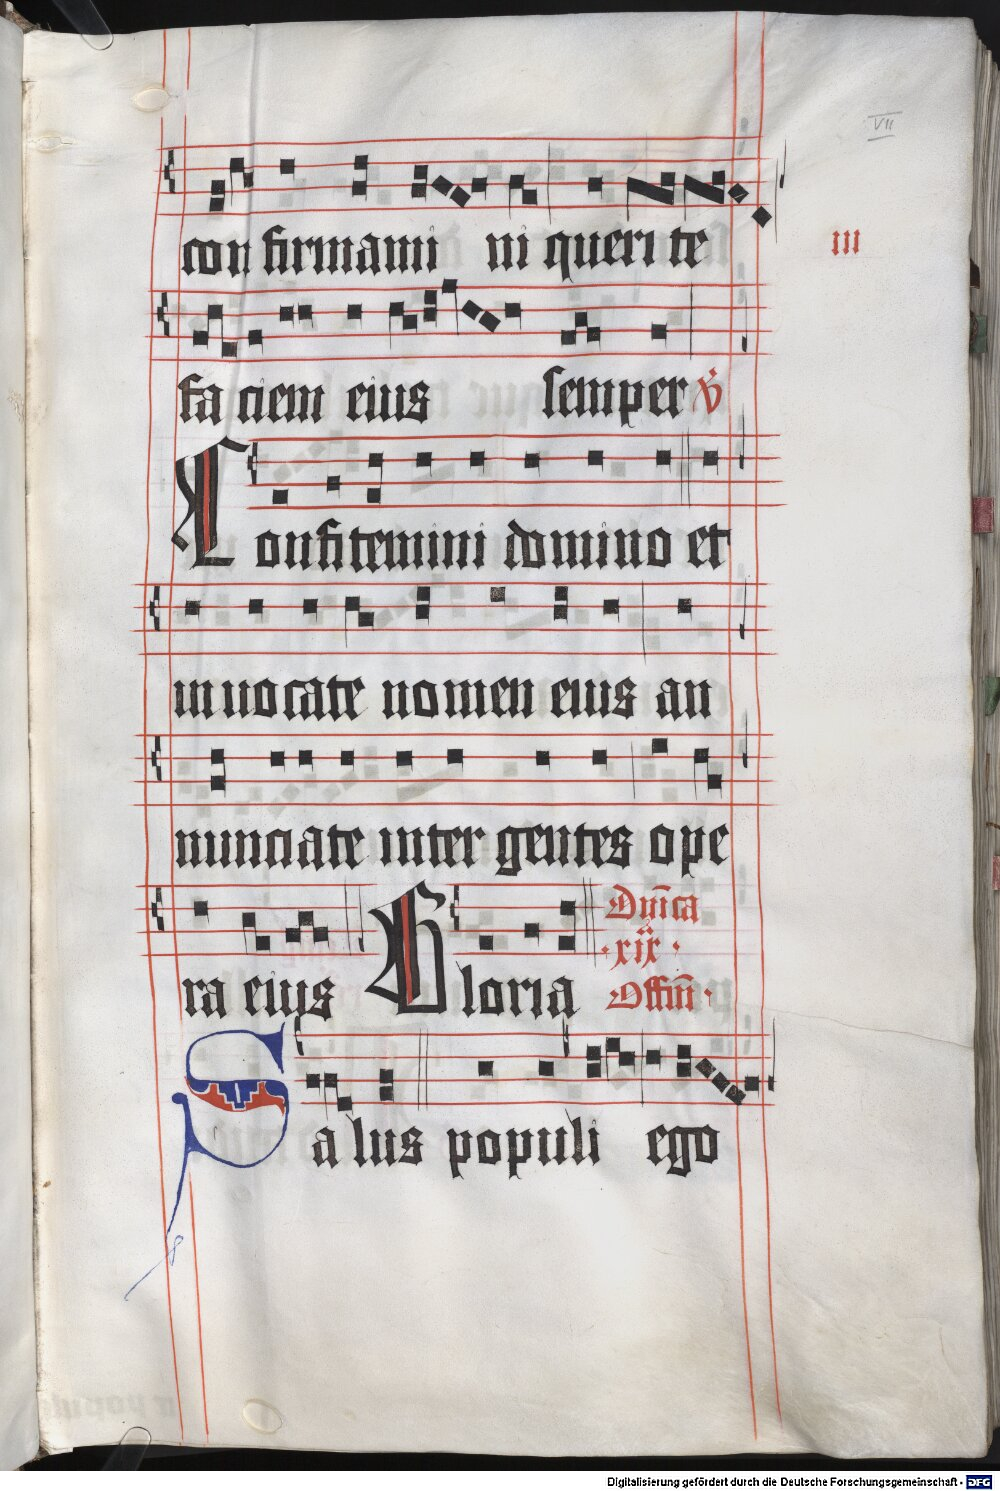 VII
con firmami ni queri te
III
fa ciem eius semper v̇
Confitemini domino et
invocate nomen eius an
nunciate inter gentes ope
ra eius Gloria Dn̄ica
·xix·
Offm̄·
Salus populi ego
Digitalisierung gefördert durch die Deutsche Forschungsgemeinschaft - DFG